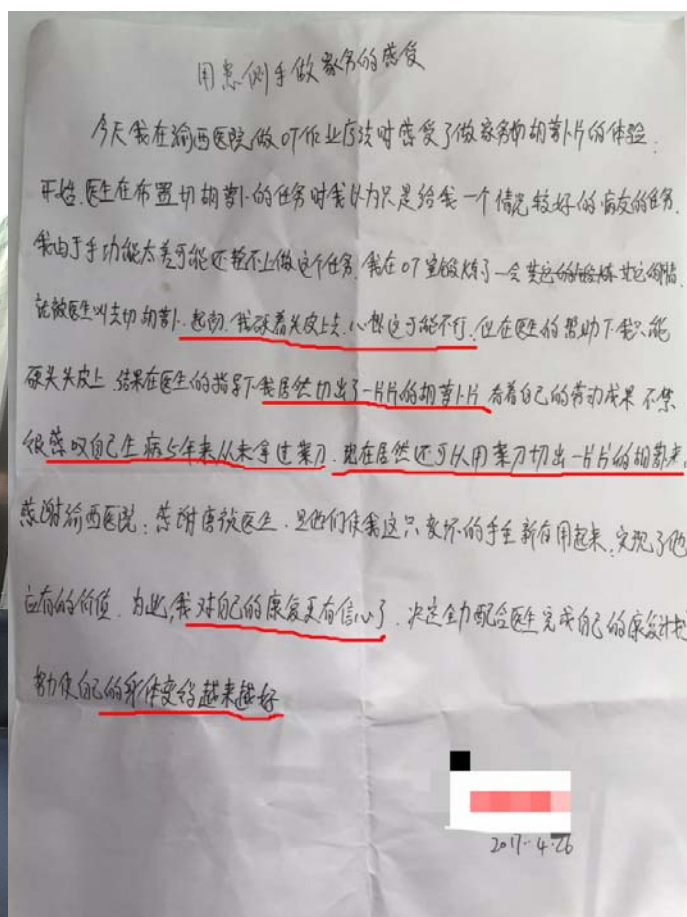 用患侧手做家务的感受
今天我在渝西医院做OT作业疗法时感受了做家务切胡萝卜片的体验:
开始.医生在布置切胡萝卜的任务时我以为只是给我一个情况较好的病友的任务.
我由于手功能太差可能还轮不上做这个任务.我在OT室锻炼了一会其它的
就被医生叫去切胡萝卜.起初.我硬着头皮上去.心想这可能不行.但在医生的帮助下我只能
硬头头皮上.结果在医生的指导下我居然切出了一片片的胡萝卜片 看着自己的劳动成果 不禁
很感叹自己生病5年来从未拿过菜刀.现在居然还可以用菜刀切出一片片的胡萝卜来.
感谢渝西医院:感谢唐毅医生.是他们使我这只变坏的手重新有用起来.实现了他
应有的价值.为此,我对自己的康复更有信心了.决定全力配合医生完成自己的康复计划
努力使自己的身体变得越来越好
2017.4.26